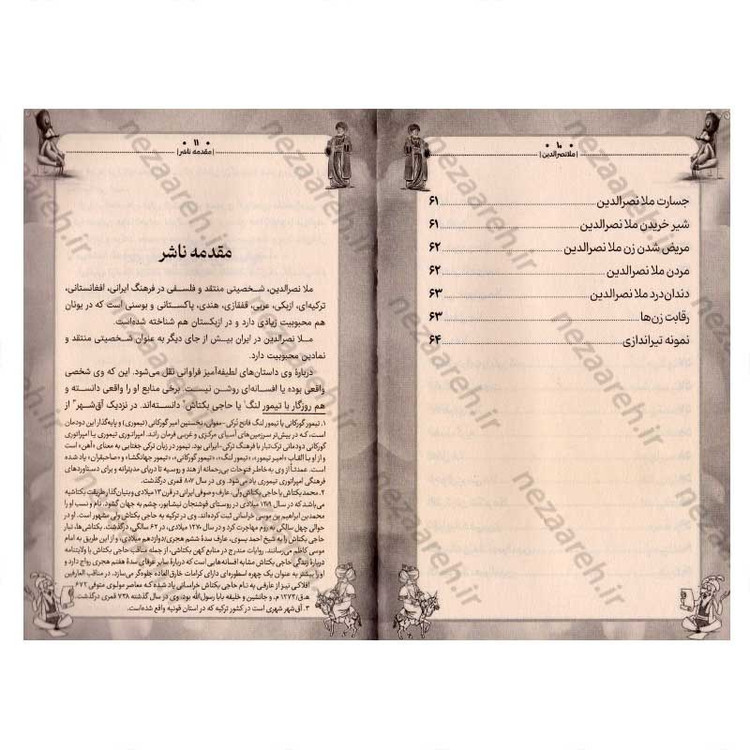 ۱۰
|ملانصرالدین|
جسارت ملا نصرالدین ۶۱
شیر خریدن ملا نصرالدین ۶۱
مریض شدن زن ملا نصرالدین ۶۲
مردن ملا نصرالدین ۶۲
دندان‌درد ملا نصرالدین ۶۳
رقابت زن‌ها ۶۳
نمونه تیراندازی ۶۴
۱۱
|مقدمه ناشر|
مقدمه ناشر
ملا نصرالدین، شخصیتی منتقد و فلسفی در فرهنگ ایرانی، افغانستانی،
ترکیه‌ای، ازبکی، عربی، قفقازی، هندی، پاکستانی و بوسنی است که در یونان
هم محبوبیت زیادی دارد و در ازبکستان هم شناخته شده‌است.
ملا نصرالدین در ایران بیش از جای دیگر به عنوان شخصیتی منتقد و
نمادین محبوبیت دارد.
دربارهٔ وی داستان‌های لطیفه‌آمیز فراوانی نقل می‌شود. این که وی شخصی
واقعی بوده یا افسانه‌ای روشن نیست. برخی منابع او را واقعی دانسته و
هم روزگار با تیمور لنگ۱ یا حاجی بکتاش۲ دانسته‌اند. در نزدیک آق‌شهر۳ از
۱. تیمور گورکانی یا تیمور لنگ فاتح تُرکی -مغولی، نخستین امیر گورکانی (تیموری) و پایه‌گذار این دودمان
است، که در بیش‌تر سرزمین‌های آسیای مرکزی و غربی فرمان راند. امپراتوری تیموری یا امپراتوری
گورکانی دودمانی ترک‌تبار با فرهنگ تُرکی-ایرانی بود. تیمور در زبان ترکی جغتایی به معنای «آهن» است
و از او با القاب «امیر تیمور»، «تیمور لنگ»، «تیمور گورکانی»، «تیمور جهانگشا» و «صاحبقران» یاد شده
است. عمدتاً از وی به‌خاطر فتوحات بی‌رحمانه از هند و روسیه تا دریای مدیترانه و برای دستاوردهای
فرهنگی امپراتوری تیموری یاد می‌شود. وی در سال ۸۰۷ قمری درگذشت.
۲. محمد بکتاش یا حاجی بکتاش ولی، عارف و صوفی ایرانی در قرن ۱۳ میلادی و بنیان‌گذار طریقت بکتاشیه
می‌باشد که در سال ۱۲۰۹ میلادی در روستای فوشنجان نیشابور، چشم به جهان گشود. نام و نسب او را
محمدبن ابراهیم بن موسی خراسانی ثبت کرده‌اند. وی در ترکیه به حاجی بکتاش ولی مشهور است. او در
حوالی چهل سالگی به روم مهاجرت کرد و در سال ۱۲۷۰ میلادی، در ۶۲ سالگی، درگذشت. بکتاشی‌ها، تبار
حاجی بکتاش را به شیخ احمد یسوی، عارف سدهٔ ششم هجری/دوازدهم میلادی، و از این طریق به امام
موسی کاظم می‌رسانند. روایات مندرج در منابع کهن بکتاشی، از جمله مناقب حاجی بکتاش یا ولایتنامه
دربارهٔ زندگی حاجی بکتاش مشابه افسانه‌هایی است که دربارهٔ سایر عرفای سدهٔ هفتم هجری رواج دارد و
او را بیشتر به عنوان یک چهره اسطوره‌ای دارای کرامات خارق‌العاده جلوه‌گر می‌سازد. در مناقب العارفین
افلاکی نیز از عارفی به نام حاجی بکتاش خراسانی یاد شده‌است که معاصر مولوی متوفی ۶۷۲
ه‍.ق/۱۲۷۳ م، و جانشین و خلیفه بابا رسول‌الله بود. وی در سال گذشته ۷۳۸ قمری درگذشت.
۳. آق‌شهر شهری است در کشور ترکیه که در استان قونیه واقع شده‌است.
nezaareh.ir
nezaareh.ir
nezaareh.ir
nezaareh.ir
nezaareh.ir
nezaareh.ir
nezaareh.ir
nezaareh.ir